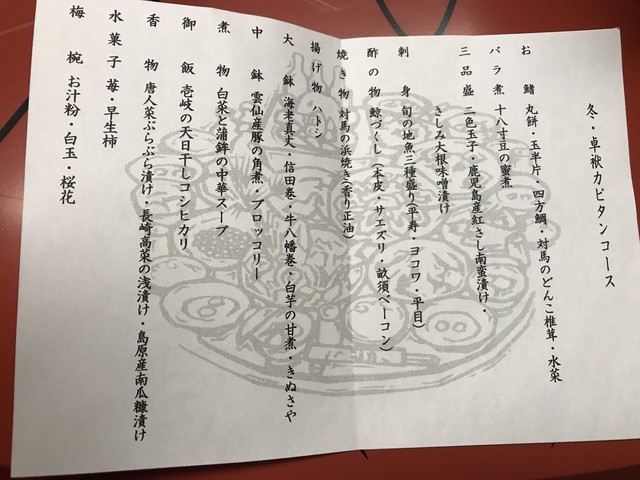 冬・卓袱カピタンコース
お鰭 丸餅・玉半片・四方鯛・対馬のどんこ椎茸・水菜
バラ煮 十八寸豆の蜜煮
三品盛 二色玉子・鹿児島産紅さし南蛮漬け・
さしみ大根味噌漬け
刺身 旬の地魚三種盛り(平寿・ヨコワ・平目)
酢の物 鯨づくし(本皮・サエズリ・畝須ベーコン)
焼き物 対馬の浜焼き(香り正油)
揚げ物 ハトシ
大鉢 海老真丈・信田巻・牛八幡巻・白芋の甘煮・きぬさや
中鉢 雲仙産豚の角煮・ブロッコリー
煮物 白菜と蒲鉾の中華スープ
御飯 壱岐の天日干しコシヒカリ
香物 唐人菜ぶらぶら漬け・長崎高菜の浅漬け・島原産南瓜糠漬け
水菓子 苺・早生柿
梅椀 お汁粉・白玉・桜花